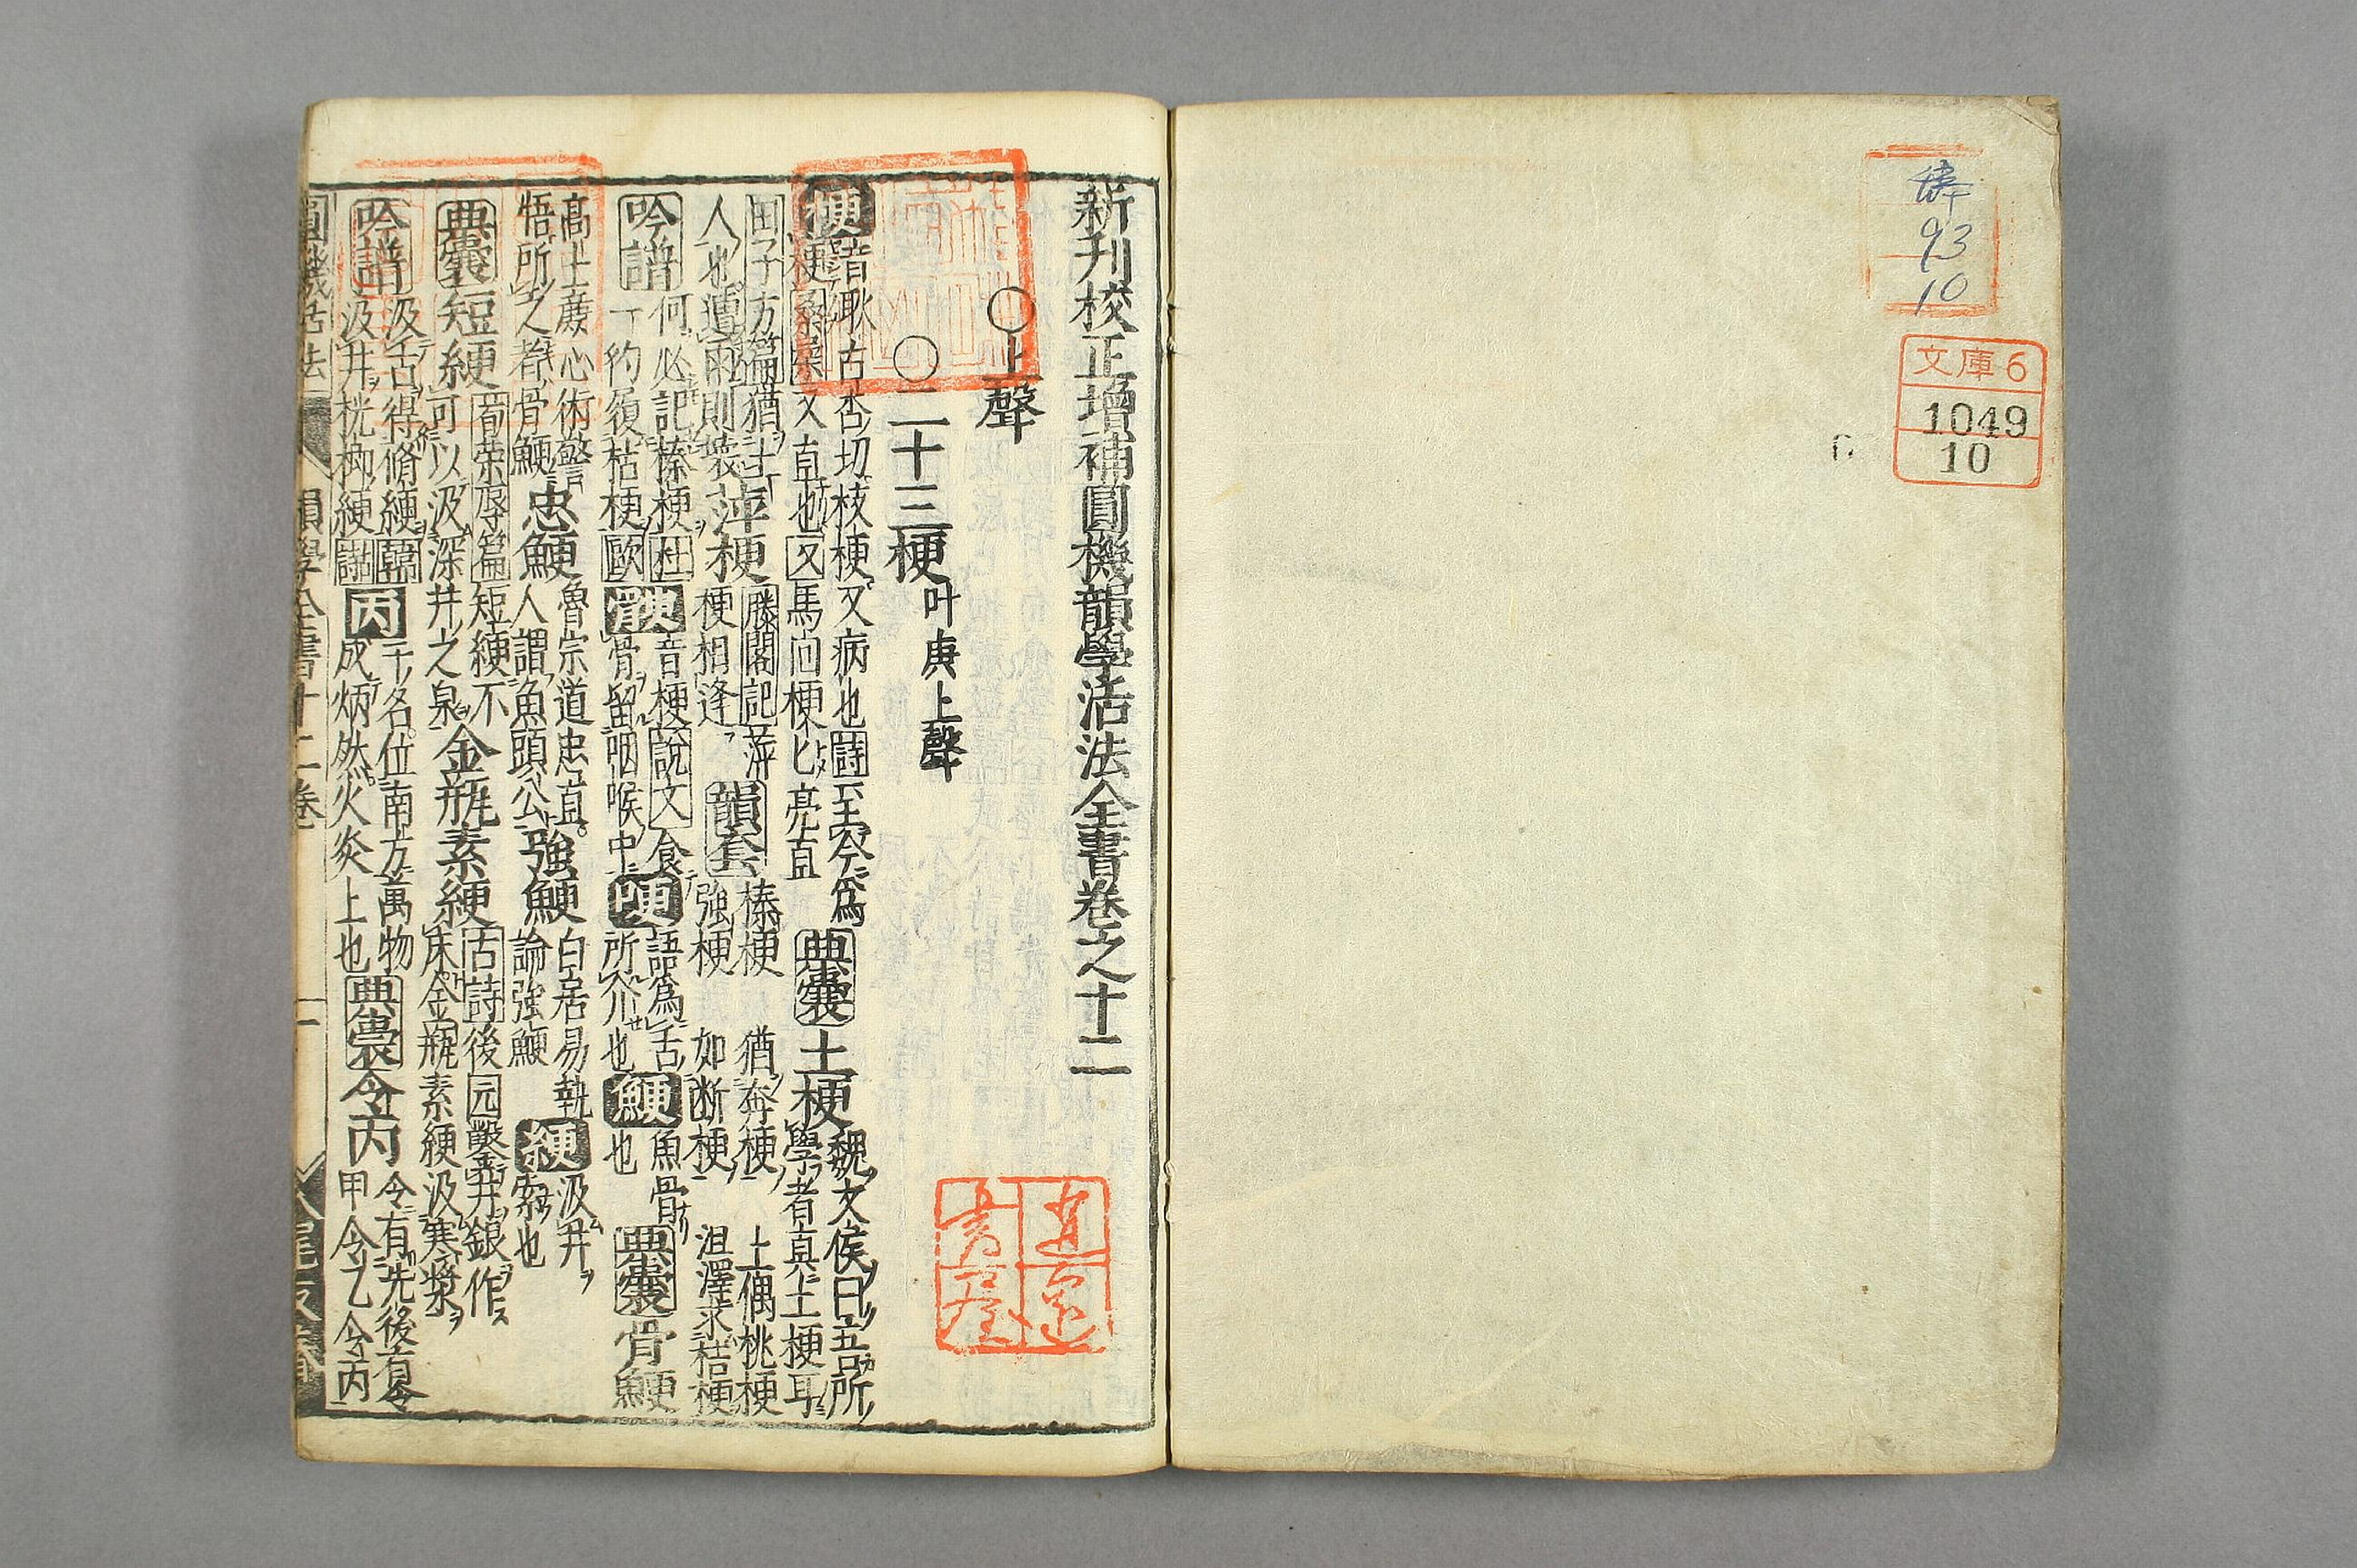 文庫6
1049
10
93
10
新刊校正增補圓機韻學活法全書卷之十二
○上聲
○二十三梗叶庚上聲
梗
音耿古杏切枝梗又病也詩至今爲
梗又直也又馬向梗匕亮直
典囊
土梗
魏文侯曰吾所
學者真土梗耳
田子方篇猶土
人也遭雨則壞
萍梗
滕閣記萍
梗相逢
韻套
榛梗 猶奔梗 土偶桃梗
強梗 如断梗 沮澤求桔梗
吟譜
何必記榛梗杜
一約須枯梗歐
骾
音梗說文食
骨留咽喉中
哽
語爲舌
所介也
鯁
魚骨
也
典囊
骨鯁
高士廉心術警
悟所之者骨鯁
忠鯁
魯宗道忠直
人謂魚頭公
強鯁
白居易執
論強鯁
綆
汲井
索也
典囊
短綆
荀榮辱篇短綆不
可以汲深井之泉
金瓶素綆
古詩後园鑿井銀作
床金瓶素綆汲寒漿
吟譜
汲舌得脩綆韓
汲井桄榔綆
丙
干名位南方萬物
成炳然火炎上也
典囊
令丙
令有先後有令
甲令乙令丙
圓機活法
韻學全書十二卷
一